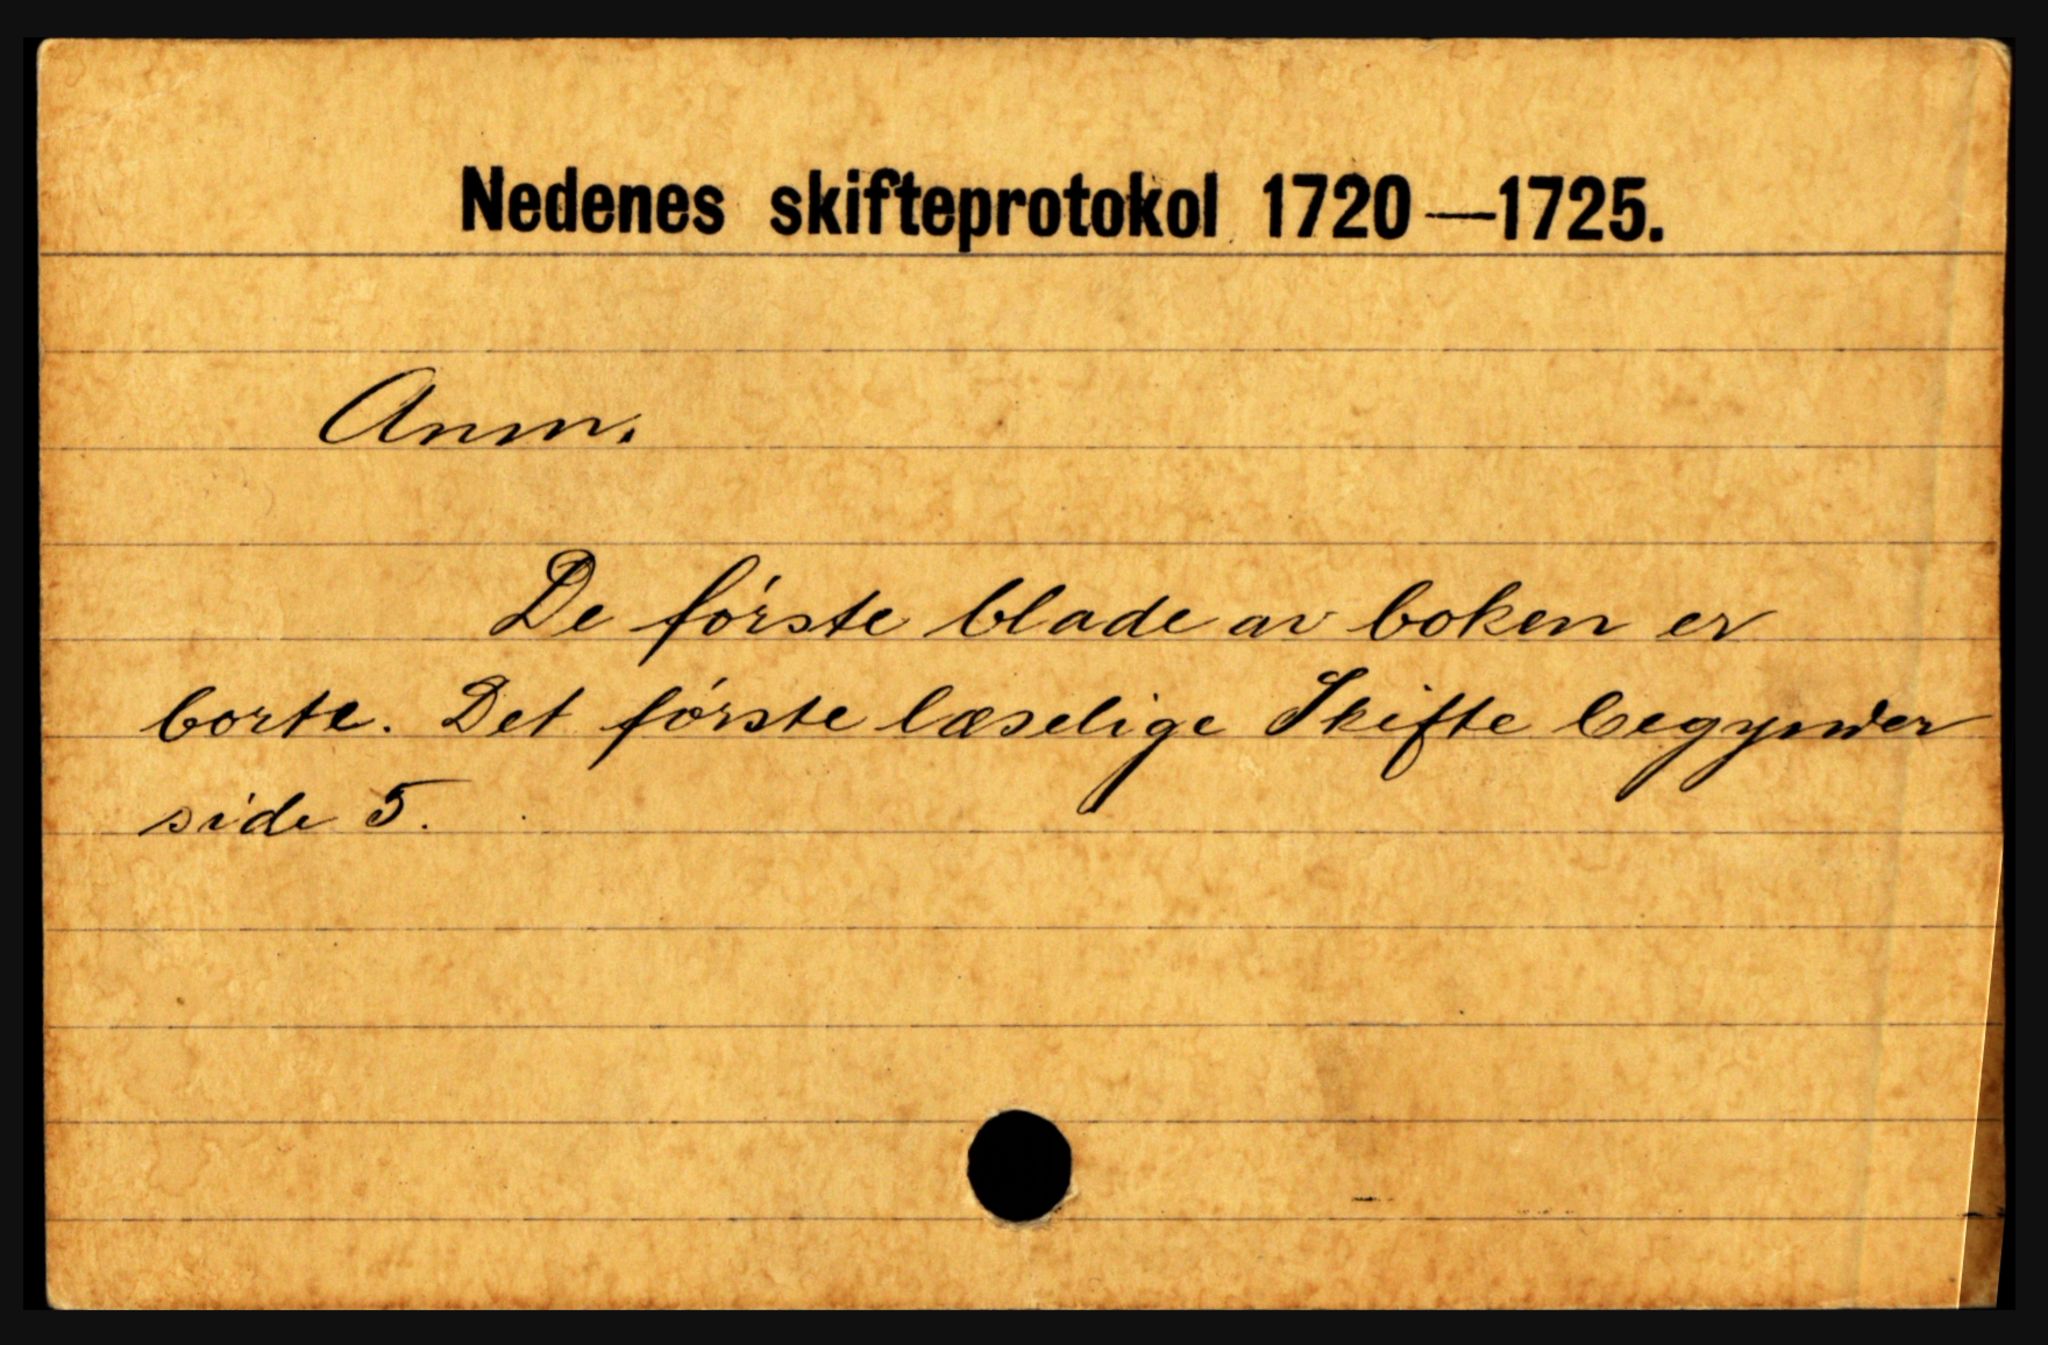 Nedenes skifteprotokol 1720—1725.
Anm.
De første blade av boken er
borte. Det første læselige Skifte begynder
side 5.